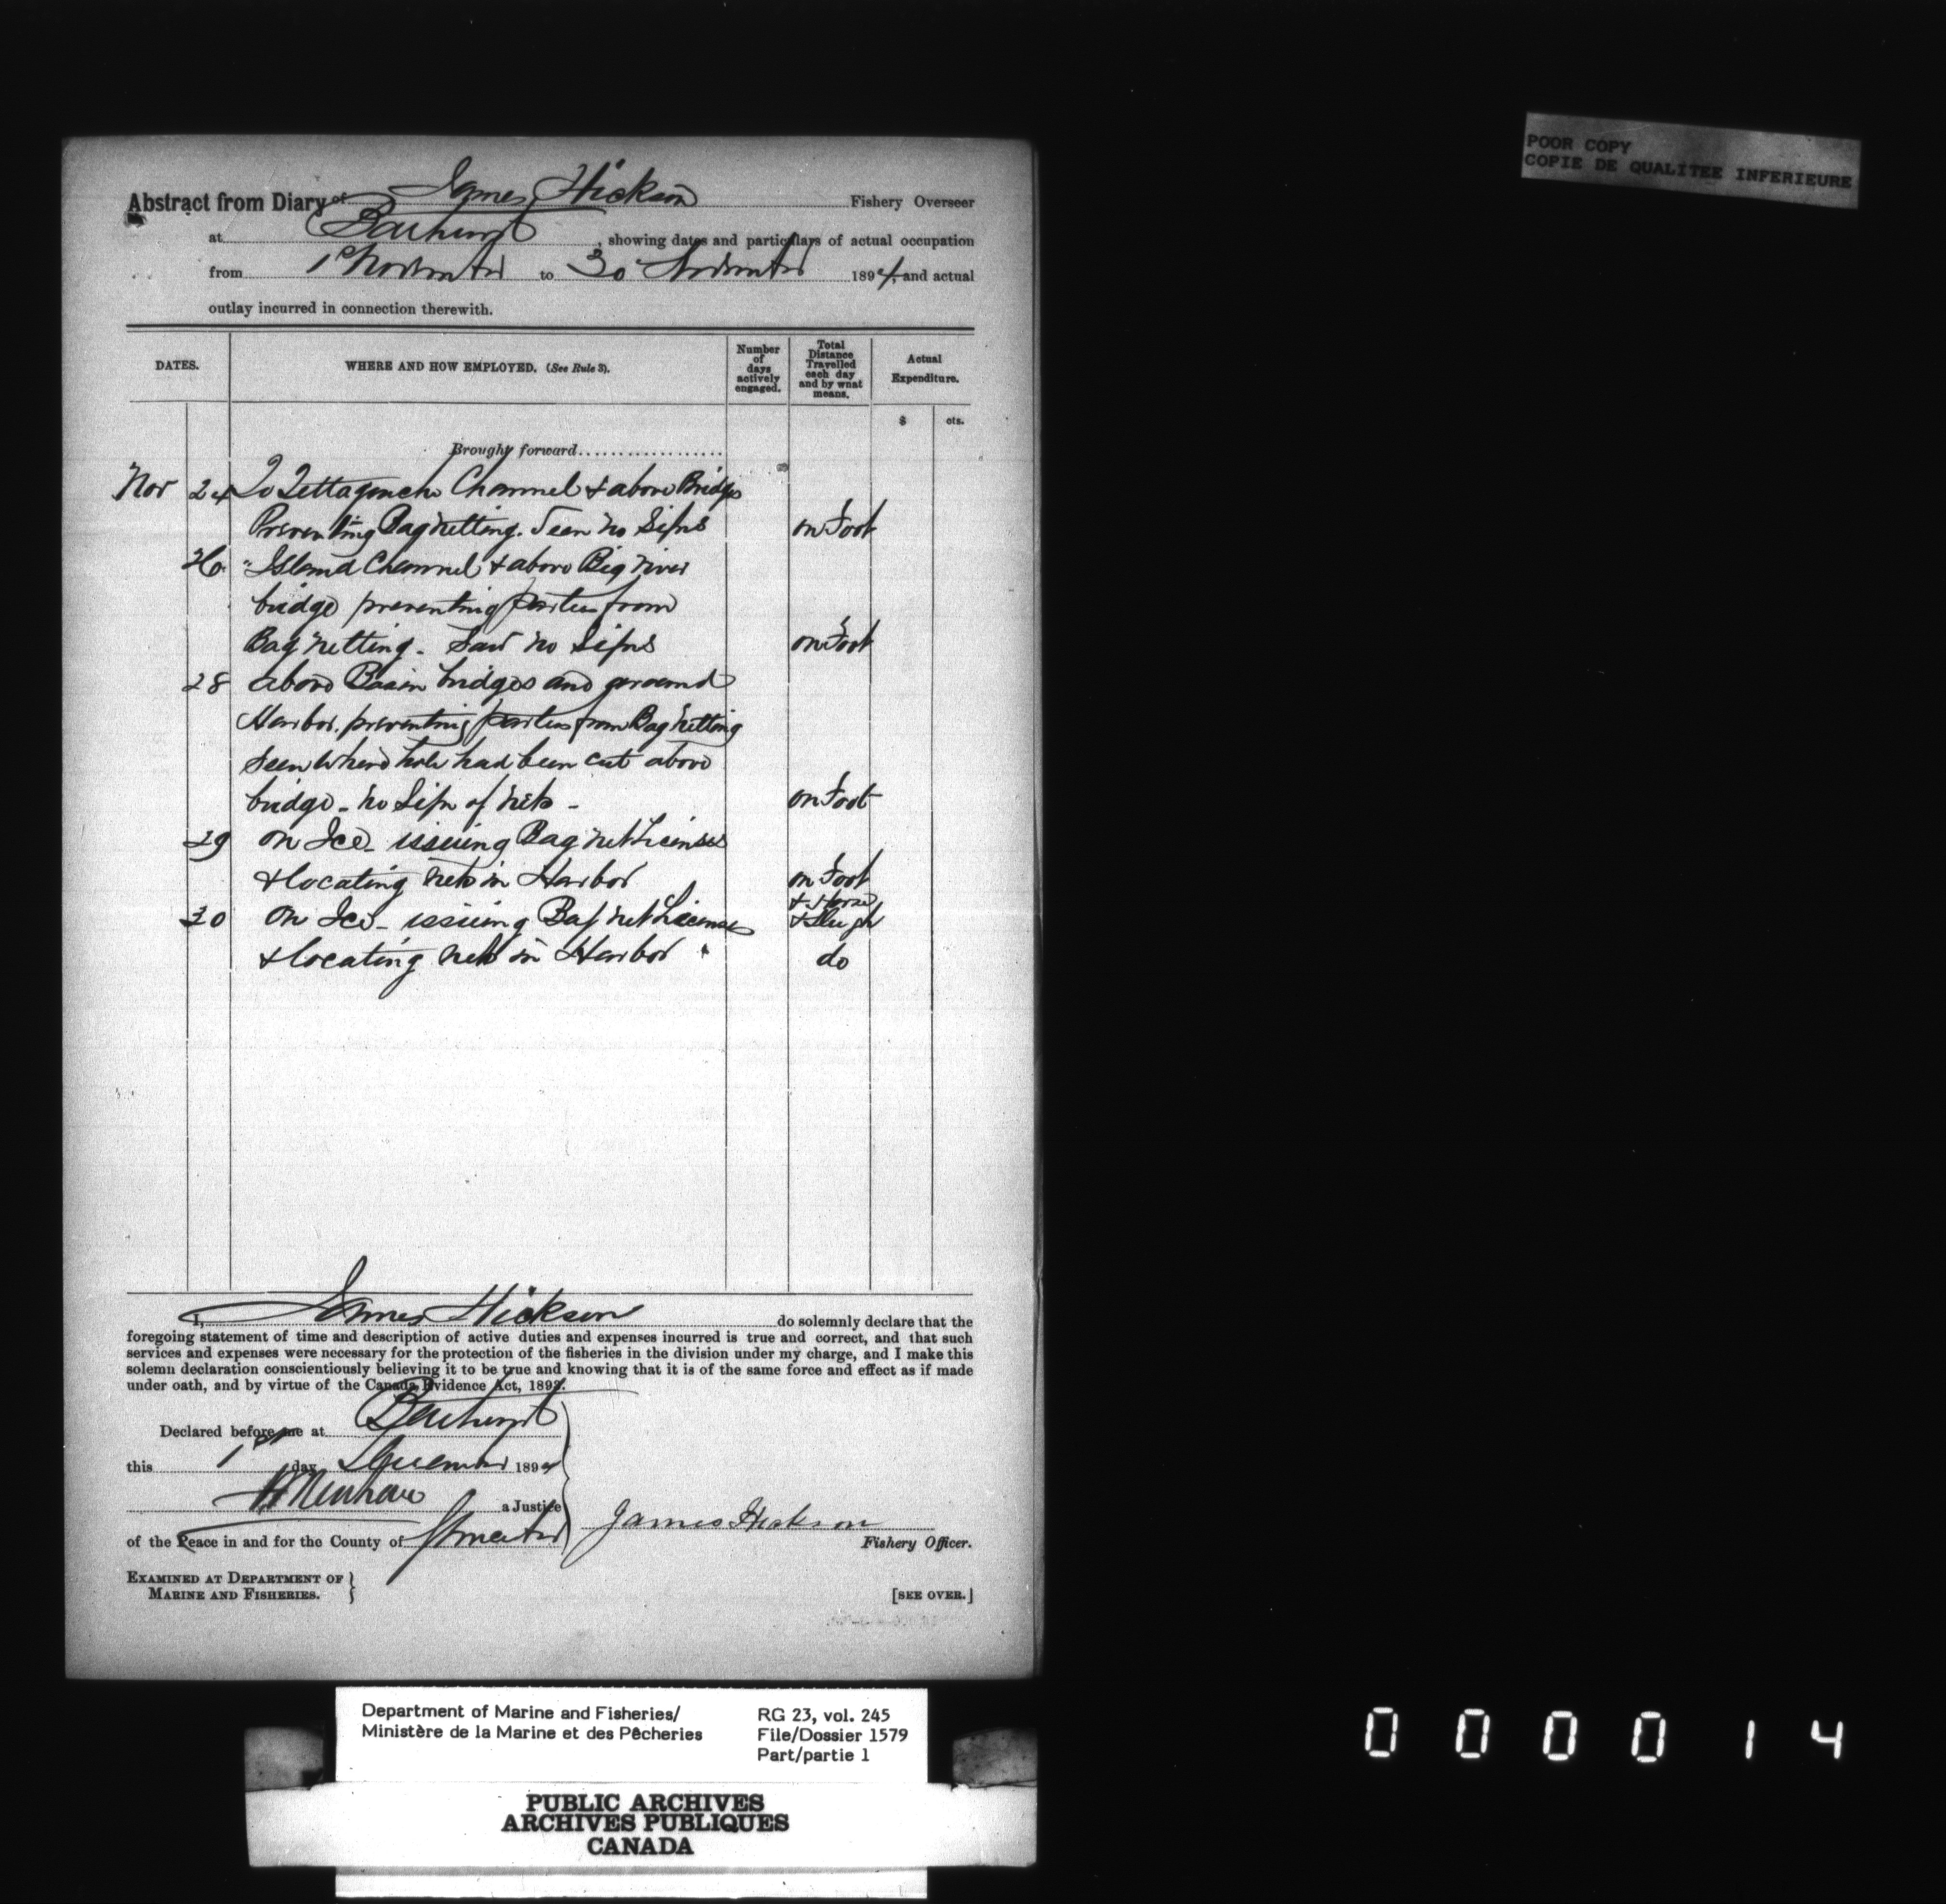 Abstract from Diary of James Hickson Fishery Overseer
at Bathurst, showing dates and particulars of actual occupation
from 1st November to 30 November 1894, and actual
outlay incurred in connection therewith.
DATES.
WHERE AND HOW EMPLOYED. (See Rule 3).
Number of days actively engaged.
Total Distance Travelled each day and by what means.
Actual Expenditure.
$ cts.
Brought forward
Nov 24 To Tettagouche Channel & above Bridges
Preventing Bagnetting. Seen no Signs on Foot
26 " Island Channel & above Big river
bridge preventing parties from
Bag netting - Saw no Signs on Foot
28 above Basin bridges and around
Harbor. preventing parties from Bag netting
Seen where hole had been cut above
bridge - no Sign of nets - on Foot
29 on Ice - issuing Bag net Licenses
& locating nets in Harbor on Foot
& Horse
& Sleigh
30 on Ice - issuing Bag net Licenses
& locating nets in Harbor " do
I, James Hickson do solemnly declare that the
foregoing statement of time and description of active duties and expenses incurred is true and correct, and that such
services and expenses were necessary for the protection of the fisheries in the division under my charge, and I make this
solemn declaration conscientiously believing it to be true and knowing that it is of the same force and effect as if made
under oath, and by virtue of the Canada Evidence Act, 1893.
Declared before me at Bathurst
this 1st day December 1894
a Justice
of the Peace in and for the County of Gloucester
James Hickson
Fishery Officer.
EXAMINED AT DEPARTMENT OF
MARINE AND FISHERIES.
[SEE OVER.]
POOR COPY
COPIE DE QUALITEE INFERIEURE
Department of Marine and Fisheries/
Ministère de la Marine et des Pêcheries
RG 23, vol. 245
File/Dossier 1579
Part/partie 1
PUBLIC ARCHIVES
ARCHIVES PUBLIQUES
CANADA
000014